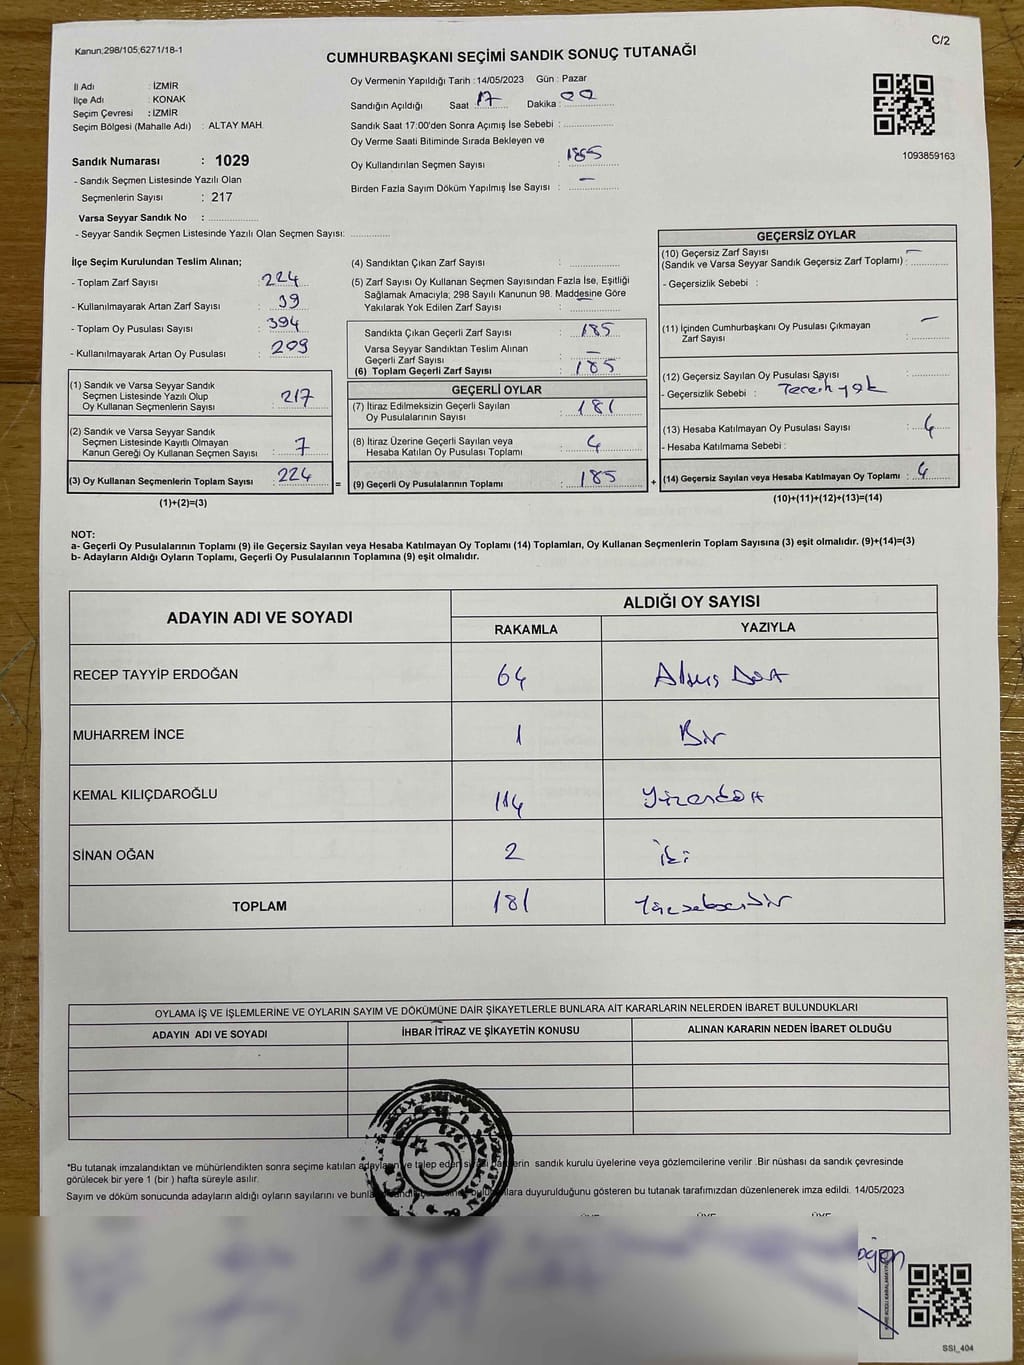 Kanun:298/105;6271/18-1
C/2
CUMHURBAŞKANI SEÇİMİ SANDIK SONUÇ TUTANAĞI
İl Adı : İZMİR
İlçe Adı : KONAK
Seçim Çevresi : İZMİR
Seçim Bölgesi (Mahalle Adı) : ALTAY MAH.
Oy Vermenin Yapıldığı Tarih : 14/05/2023 Gün : Pazar
Sandığın Açıldığı Saat : 17 Dakika : 00
Sandık Saat 17:00'den Sonra Açımış İse Sebebi :
Oy Verme Saati Bitiminde Sırada Bekleyen ve
Oy Kullandırılan Seçmen Sayısı : 185
Birden Fazla Sayım Döküm Yapılmış İse Sayısı : –
1093859163
Sandık Numarası : 1029
- Sandık Seçmen Listesinde Yazılı Olan
Seçmenlerin Sayısı : 217
Varsa Seyyar Sandık No :
- Seyyar Sandık Seçmen Listesinde Yazılı Olan Seçmen Sayısı:
İlçe Seçim Kurulundan Teslim Alınan;
- Toplam Zarf Sayısı : 224
- Kullanılmayarak Artan Zarf Sayısı : 39
- Toplam Oy Pusulası Sayısı : 394
- Kullanılmayarak Artan Oy Pusulası : 209
(1) Sandık ve Varsa Seyyar Sandık
Seçmen Listesinde Yazılı Olup
Oy Kullanan Seçmenlerin Sayısı : 217
(2) Sandık ve Varsa Seyyar Sandık
Seçmen Listesinde Kayıtlı Olmayan
Kanun Gereği Oy Kullanan Seçmen Sayısı : 7
(3) Oy Kullanan Seçmenlerin Toplam Sayısı : 224
(1)+(2)=(3)
=
(4) Sandıktan Çıkan Zarf Sayısı :
(5) Zarf Sayısı Oy Kullanan Seçmen Sayısından Fazla İse, Eşitliği
Sağlamak Amacıyla; 298 Sayılı Kanunun 98. Maddesine Göre
Yakılarak Yok Edilen Zarf Sayısı :
Sandıkta Çıkan Geçerli Zarf Sayısı : 185
Varsa Seyyar Sandıktan Teslim Alınan
Geçerli Zarf Sayısı : –
(6) Toplam Geçerli Zarf Sayısı : 185
GEÇERLİ OYLAR
(7) İtiraz Edilmeksizin Geçerli Sayılan
Oy Pusulalarının Sayısı : 181
(8) İtiraz Üzerine Geçerli Sayılan veya
Hesaba Katılan Oy Pusulası Toplamı : 4
(9) Geçerli Oy Pusulalarının Toplamı : 185
+
GEÇERSİZ OYLAR
(10) Geçersiz Zarf Sayısı
(Sandık ve Varsa Seyyar Sandık Geçersiz Zarf Toplamı) : –
- Geçersizlik Sebebi :
(11) İçinden Cumhurbaşkanı Oy Pusulası Çıkmayan
Zarf Sayısı : –
(12) Geçersiz Sayılan Oy Pusulası Sayısı :
- Geçersizlik Sebebi : Tercih yok
(13) Hesaba Katılmayan Oy Pusulası Sayısı : 4
- Hesaba Katılmama Sebebi :
(14) Geçersiz Sayılan veya Hesaba Katılmayan Oy Toplamı : 4
(10)+(11)+(12)+(13)=(14)
NOT:
a- Geçerli Oy Pusulalarının Toplamı (9) ile Geçersiz Sayılan veya Hesaba Katılmayan Oy Toplamı (14) Toplamları, Oy Kullanan Seçmenlerin Toplam Sayısına (3) eşit olmalıdır. (9)+(14)=(3)
b- Adayların Aldığı Oyların Toplamı, Geçerli Oy Pusulalarının Toplamına (9) eşit olmalıdır.
ADAYIN ADI VE SOYADI
ALDIĞI OY SAYISI
RAKAMLA YAZIYLA
RECEP TAYYİP ERDOĞAN 64 Altmış Dört
MUHARREM İNCE 1 Bir
KEMAL KILIÇDAROĞLU 114 Yüzondört
SİNAN OĞAN 2 İki
TOPLAM 181 Yüzseksenbir
OYLAMA İŞ VE İŞLEMLERİNE VE OYLARIN SAYIM VE DÖKÜMÜNE DAİR ŞİKAYETLERLE BUNLARA AİT KARARLARIN NELERDEN İBARET BULUNDUKLARI
ADAYIN ADI VE SOYADI İHBAR İTİRAZ VE ŞİKAYETİN KONUSU ALINAN KARARIN NEDEN İBARET OLDUĞU
*Bu tutanak imzalandıktan ve mühürlendikten sonra seçime katılan adayların ve talep eden siyasi partilerin sandık kurulu üyelerine veya gözlemcilerine verilir .Bir nüshası da sandık çevresinde
görülecek bir yere 1 (bir ) hafta süreyle asılır.
Sayım ve döküm sonucunda adayların aldığı oyların sayılarını ve duyurulduğunu gösteren bu tutanak tarafımızdan düzenlenerek imza edildi. 14/05/2023
ÜYE ÜYE ÜYE
SSI_404